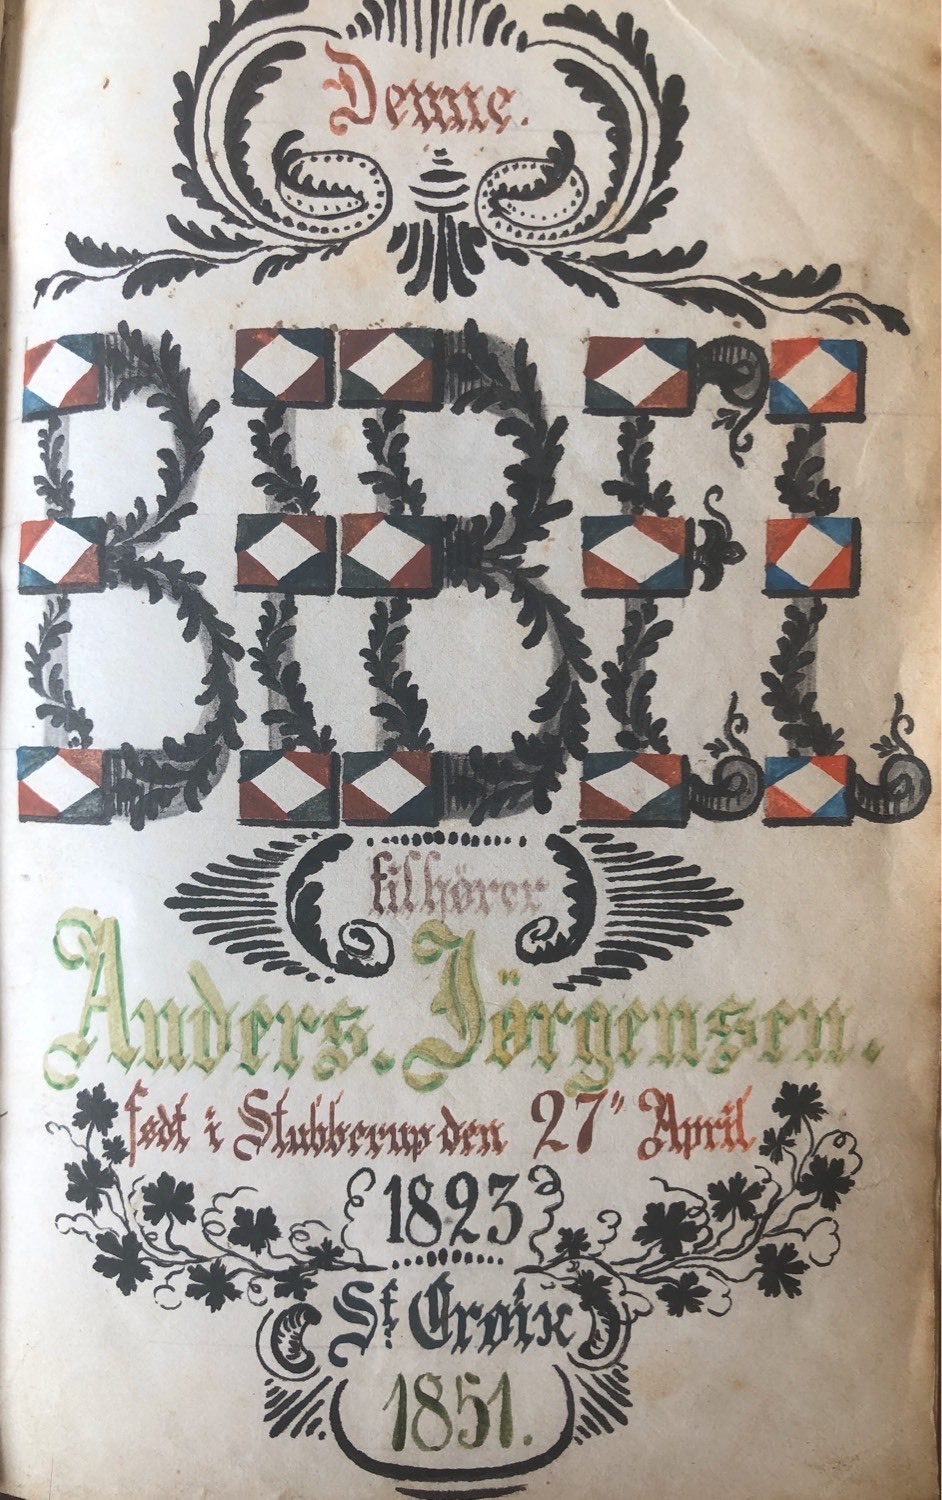 Denne.
BIBEL
tilhörer
Anders. Jörgensen.
født i Stubberup den 27" April
1823
St Croix
1851.